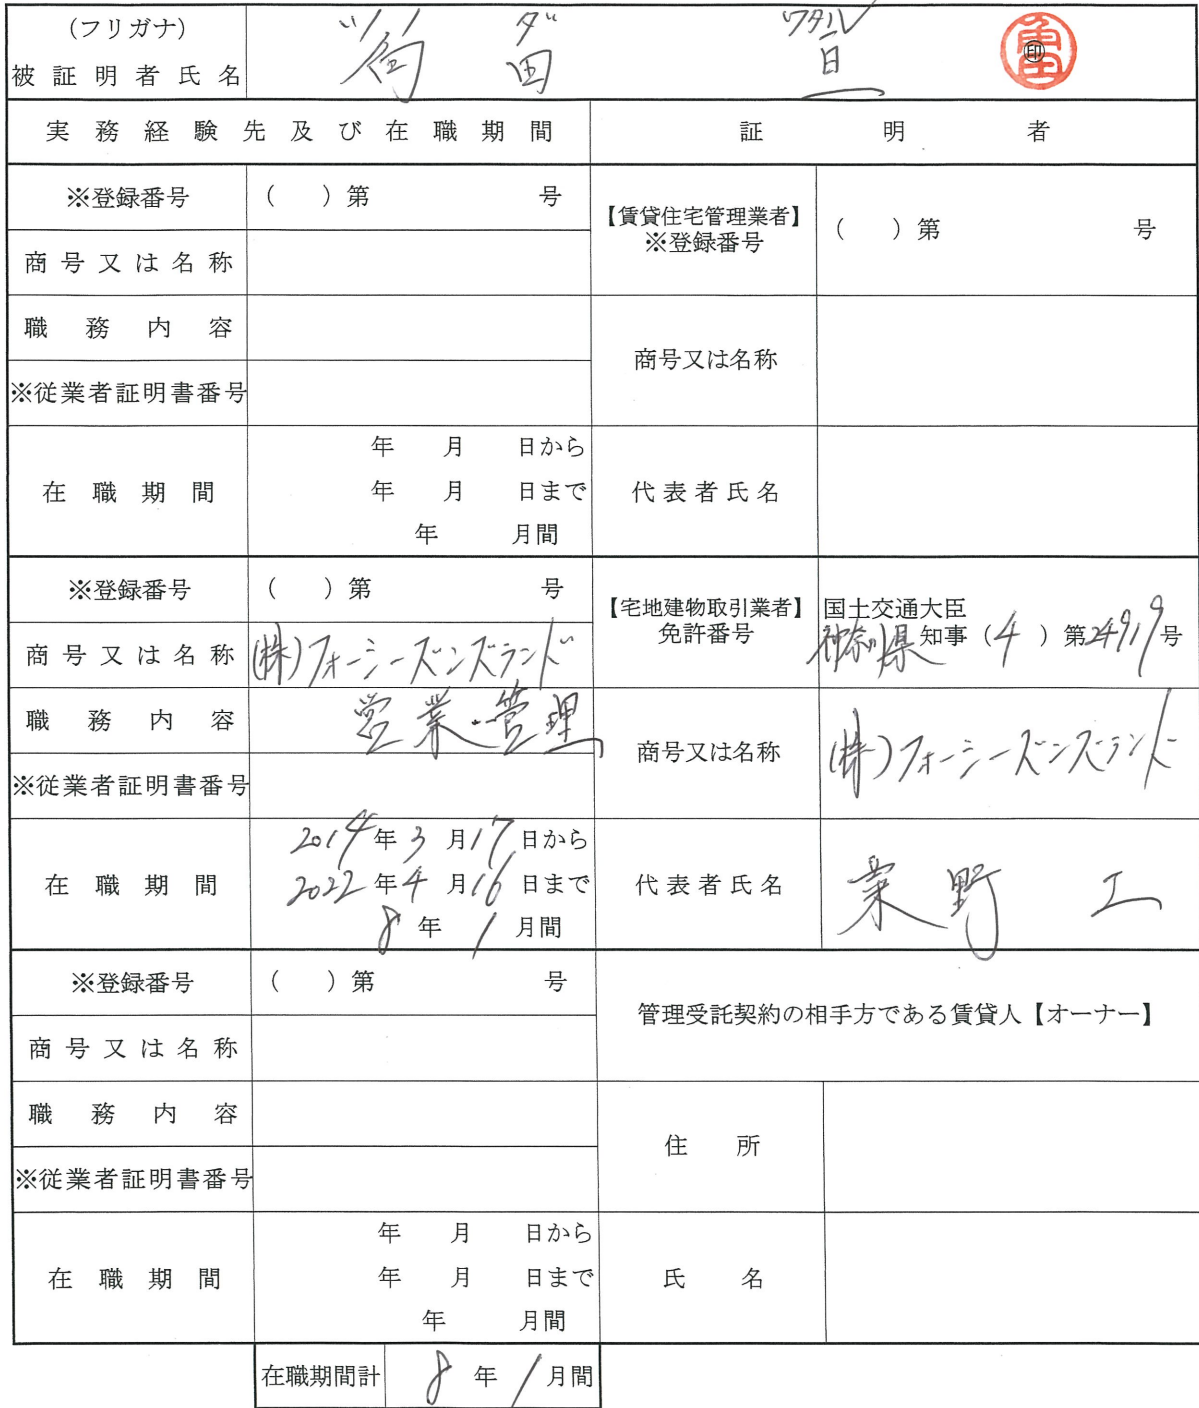 (フリガナ) ツノ ダ ワタル
被証明者氏名 角 田 亘 ㊞
実務経験先及び在職期間 証明者
※登録番号 ( )第 号
【賃貸住宅管理業者】
※登録番号 ( )第 号
商号又は名称
職務内容
商号又は名称
※従業者証明書番号
在職期間
年 月 日から
年 月 日まで
年 月間
代表者氏名
※登録番号 ( )第 号
【宅地建物取引業者】
免許番号
国土交通大臣
神奈川県知事(4)第24919号
商号又は名称 (株)フォーシーズンズランド
職務内容 営業・管理
商号又は名称 (株)フォーシーズンズランド
※従業者証明書番号
在職期間
2014年3月17日から
2022年4月16日まで
8年1月間
代表者氏名 野 工
※登録番号 ( )第 号
管理受託契約の相手方である賃貸人【オーナー】
商号又は名称
職務内容
住所
※従業者証明書番号
在職期間
年 月 日から
年 月 日まで
年 月間
氏名
在職期間計 8年1月間